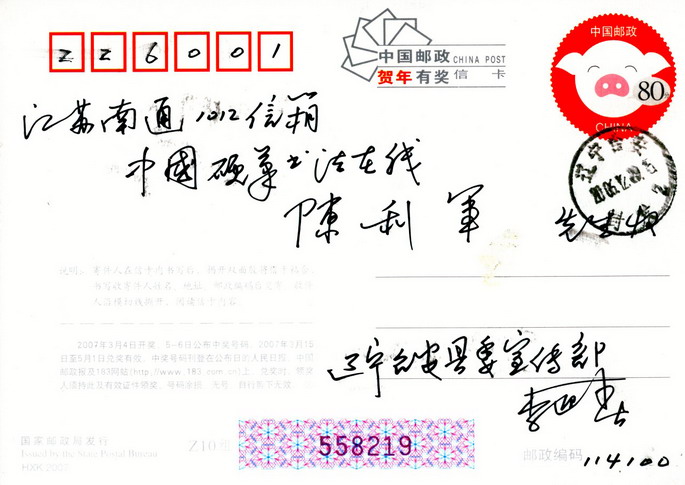 226001
中国邮政 CHINA POST
贺年有奖 信 卡
中国邮政
80
CHINA
江苏南通1012信箱
中國硬笔书法在线
陳利軍 先生收
2007年3月4日开奖，5-6日公布中奖号码。2007年3月15
日至5月1日兑奖有效。中奖号码刊登在公布日的人民日报、中国
邮政报及183网站(http://www.183.com.cn)上。兑奖时，领
辽宁台安县委宣传部
558219
国家邮政局发行
Issued by the State Postal Bureau
邮政编码 114100